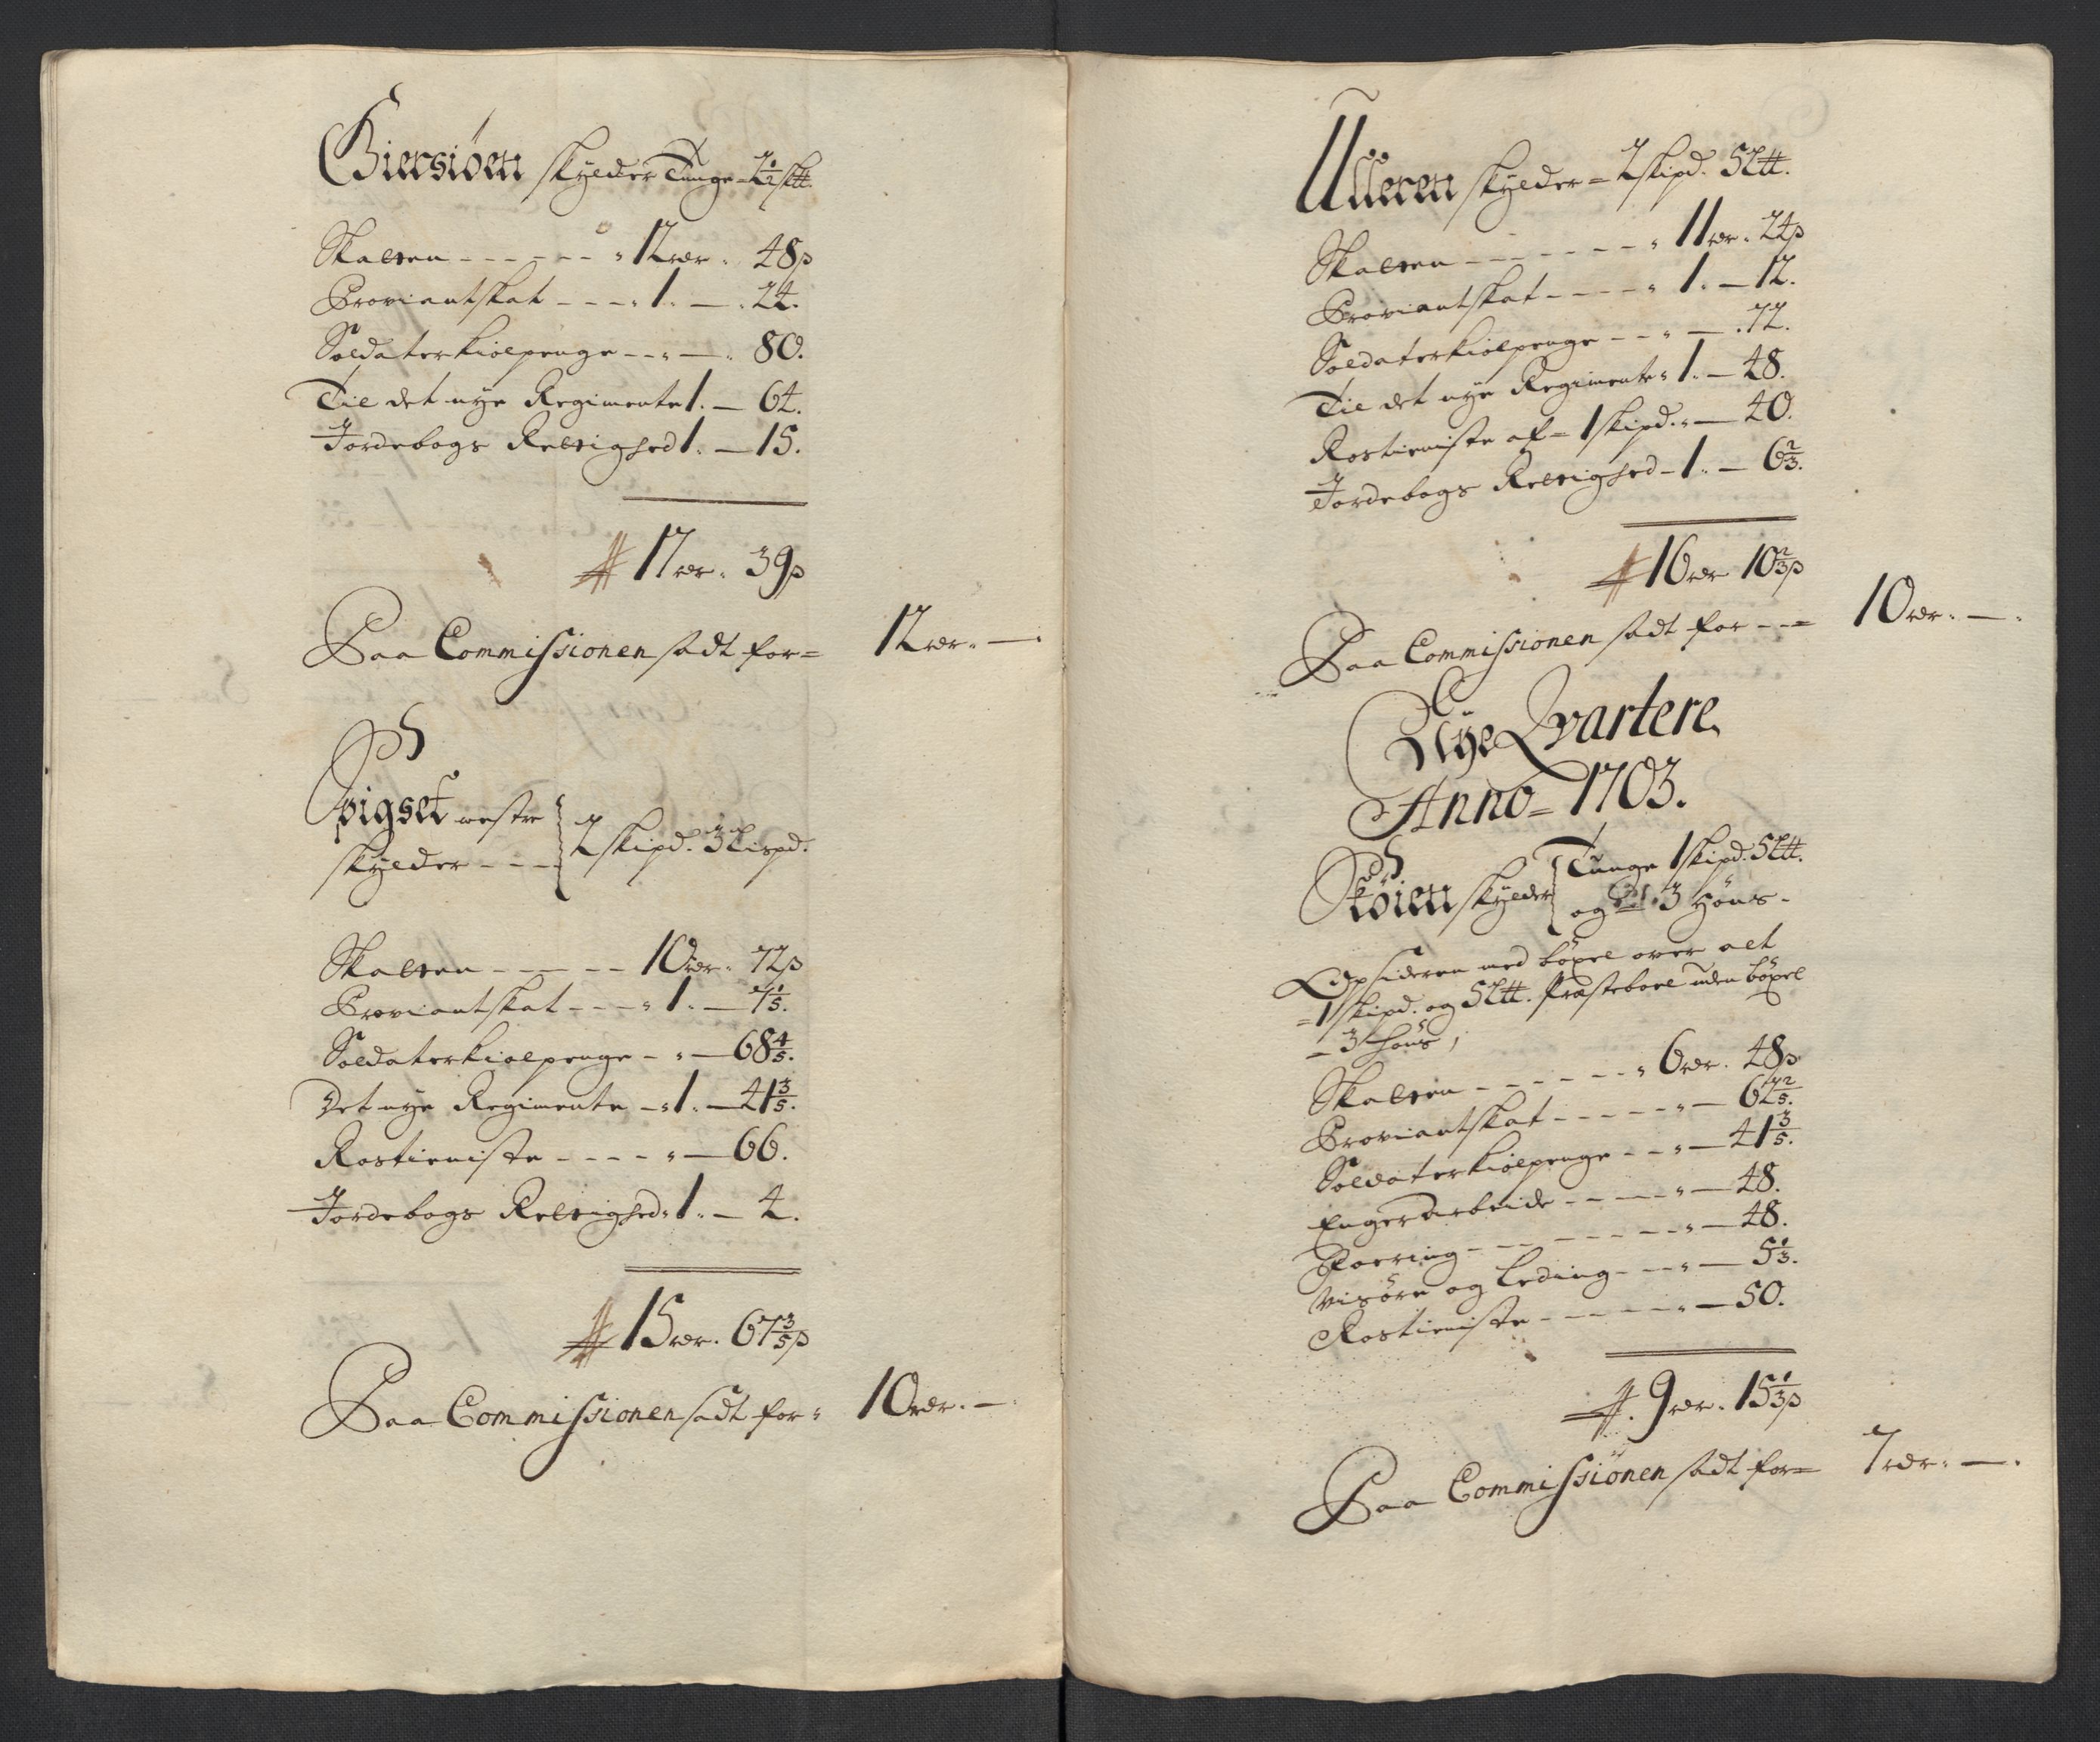 Giersiøen skylder Tunge = 2 1/2 sk℔.
Skatten - - - - - - „ 12 rdr. 48 ß
Proviantskat - - - „ 1. — 24.
Soldaterkiolpenge - - „ — „ 80.
Til det nye Regimente 1. — 64.
Jordebogs Rettighed 1. — 15.
17 rdr. 39 ß
Paa Commissionen sadt for = 12 rdr. —.
Spigset westre
skylder - - - 2 skipd. 3 Lispd.
Skatten - - - - - 10 rdr. 72 ß
Proviantskat - - - „ 1. — 7 1/5.
Soldaterkiolpenge - „ — 68 4/5.
Det nye Regimente - „ 1. — 41 3/5.
Rostieniste - - - - „ — 66.
Jordebogs Rettighed „ 1. — 4.
15 rdr. 67 3/5 ß
Paa Commissionen sadt for = 10 rdr. —.
Ulleren skylder = 2 skipd. 5 L℔.
Skatten - - - - - - „ 11 rdr. 24 ß
Proviantskat - - - - „ 1. — 12.
Soldaterkiolpenge - - „ — . 72.
Til det nye Regimente „ 1. — 48.
Rostieniste af = 1 skipd. „ — 40.
Jordebogs Rettighed - 1. — 6 2/3.
16 rdr 10 2/3 ß
Paa Commissionen sadt for - - = 10 rdr. —.
Nye Qvartere
Anno = 1703.
Støien skylder Tunge 1 skipd. 5 L℔.
og 3 Høns -
Opsideren med böxel over alt
= 1 skipd. og 5 L℔. Præsteboel uden böxel
- 3 höns;
Skatten - - - - - - „ 6 rdr. 48 ß
Proviantskat - - - - - „ — 62 2/5.
Soldaterkiolpenge - - „ — 41 3/5.
Enger arbeide - - - - „ — 48.
Foering - - - - - - - „ — 48.
Visöre og Leding - - - „ — 5 1/3.
Rostieniste - - - - - „ — 50.
9 rdr. 15 1/3 ß
Paa Commissionen sadt for = 7 rdr. —.